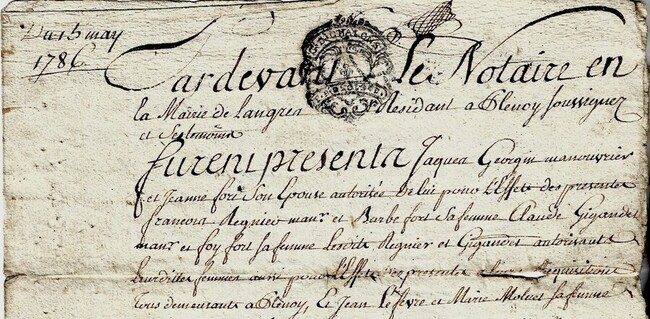 Du 15 may
1786
Pardevant Le Notaire en
la Mairie de Langres Residant a Plenoy soussignez
et Ses temoins
furent presents Jaques Georgin manouvrier
et Jeanne fort Son Epouse autorisée de lui pour l'Effet des presentes
francois Regnier manr et Barbe fort sa femme Claude Gigandet
manr et foy fort sa femme lesdits Regnier et Gigandet autorisants
Leursdites femmes aussi pour l'Effet des presentes
Tous demeurants a Plenoy, Et Jean Lefevre et Marie Moluet sa femme